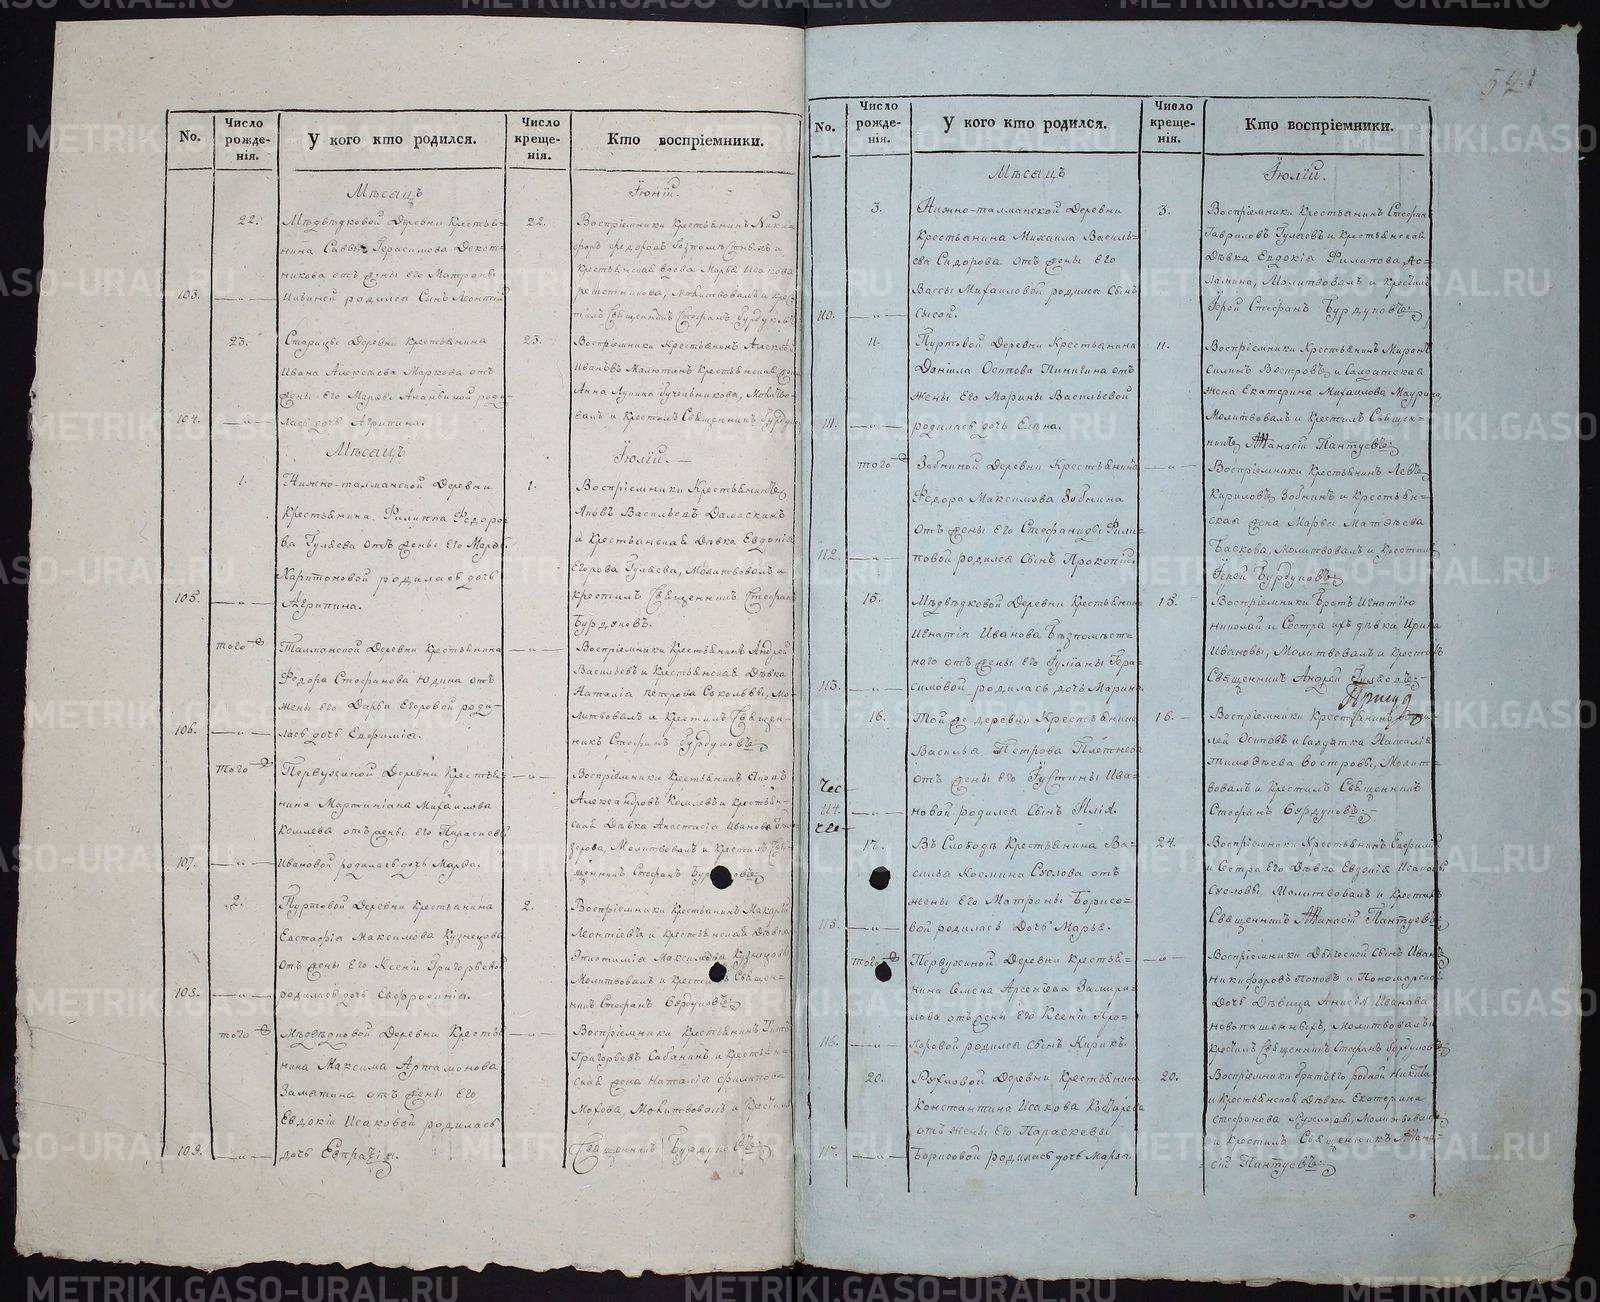 541
No.
Число рожде-нія.
У кого кто родился.
Число креще-нія.
Кто воспріемники.
Мѣсяцъ
Іюній.
22.
Мѣдвѣдковой Деревни Крестья-
нина Саввы Герасимова
никова отъ жены его Матроны
103.
Ильиной родился Сынъ Леонтій
22.
Воспріемники Крестьянинъ Ники-
форъ Федоровъ Безпомѣстныхъ и
Крестьянская вдова Марѳа Исакова
Решетникова, Молитвовалъ и Кре-
тилъ Священникъ Стефанъ Бурдуковъ
23.
Старицы Деревни Крестьянина
Ивана Алексѣева Маркова отъ
жены его Марѳы Ананьиной роди-
104.
лась дочь Агрипина.
23.
Воспріемники Крестьянинъ Алексѣй
Ивановъ Малютинъ Крестьянская
Анна Лупина Бучельникова, Молитво-
валъ и Крестилъ Священникъ Бурдуковъ
Мѣсяцъ
Іюлій.
1.
Нижно-талманской Деревни
Крестьянина Филиппа Федоро-
ва Гуляева отъ жены его Марѳы
Харитоновой родилась дочь
105.
Агрипина.
1.
Воспріемники Крестьянинъ
Яковъ Васильевъ Дамаскинъ
и Крестьянская Дѣвка Евдокія
Егорова Гуляева, Молитвовалъ и
крестилъ Священникъ Стефанъ
Бурдуковъ.
того ж
Талманской Деревни Крестьянина
Федора Стефанова Юдина отъ
жены его Дарьи Егоровой роди-
106.
лась дочь Евфимія.
Воспріемники Крестьянинъ Андрей
Васильевъ и Крестьянская Дѣвка
Наталія Петрова Соколовы, Мо-
литвовалъ и Крестилъ Священ-
никъ Стефанъ Бурдуковъ
того ж
Первухиной Деревни Крестья-
нина Мартиніана Михаилова
Комлева отъ жены его Параскевы
107.
Ивановой родилась дочь Марѳа.
Воспріемники Крестьянинъ Яковъ
Александровъ Комлевъ и крестьян-
ская Дѣвка Анастасія Иванова
зерова, Молитвовалъ и Крестилъ Свя-
щенникъ Стефанъ Бурдуковъ
2.
Пуртовой Деревни Крестьянина
Евстафія Максимова Кузнецова
отъ жены его Ксеніи Григорьевой
108.
родилась дочь Евфросинія.
2.
Воспріемники Крестьянинъ Макарій
Леонтіевъ и крестьянская Дѣвка
Эпистимія Максимова Кузнецовы
Молитвовалъ и Крестилъ Священ-
никъ Стефанъ Бурдуковъ
того ж
Деревни Крестья-
нина Максима Артамонова
Замятина отъ жены его
Евдокіи Исаковой родилась
109.
дочь Евпраксія.
Воспріемники Крестьянинъ Титъ
Григорьевъ Сабанинъ и крестьян-
ская жена Наталія Филипова
Мохова, Молитвовалъ и Крестилъ
Священникъ Бурдуковъ
No.
Число рожде-нія.
У кого кто родился.
Число креще-нія.
Кто воспріемники.
Мѣсяцъ
Іюлій.
3.
Нижно-талманской Деревни
Крестьянина Михаила Василь-
ева Сидорова отъ жены его
Вассы Михаиловой родился Сынъ
110.
Сысой.
3.
Воспріемники Крестьянинъ Стефанъ
Гавриловъ Гуляевъ и Крестьянская
Дѣвка Евдокія Филипова
Молитвовалъ и крестилъ
Іерей Стефанъ Бурдуковъ
11.
Пуртовой Деревни Крестьянина
Даніила Осипова Пинигина отъ
жены его Марины Васильевой
111.
родилась дочь Елена.
11.
Воспріемники Крестьянинъ Миронъ
Силинъ Востровъ и Салдатская
жена Екатерина Михаилова Маурина,
Молитвовалъ и Крестилъ Священ-
никъ Афанасій Пантуевъ
того ж
Зобниной Деревни Крестьянина
Федора Максимова Зобнина
отъ жены его Стефаниды Фили-
112.
повой родился Сынъ Прокопій.
Воспріемники Крестьянинъ Левъ
Кириловъ Зобнинъ и Крестьян-
ская жена Марѳа Матѳѣева
Баскова, Молитвовалъ и Крестилъ
Іерей Бурдуковъ
15.
Мѣдвѣдковой Деревни Крестьянина
Игнатія Иванова Безпомѣст-
наго отъ жены его Іуліаны Гера-
113.
симовой родилась дочь Марина.
15.
Воспріемники Братъ Игнатію
Николай и Сестра ихъ дѣвка Ирина
Ивановы, Молитвовалъ и крестилъ
Священникъ Андрей
16.
Той же деревни Крестьянина
Василья Петрова Плетнева
отъ жены его Іустины Ива-
114.
новой родился Сынъ Илія.
16.
Воспріемники Крестьянинъ
лей Осиповъ и Салдатка Наталія
Тимоѳѣева Востровы, Молит-
вовалъ и Крестилъ Священникъ
Стефанъ Бурдуковъ
17.
Въ Слободѣ Крестьянина Ва-
силья Космина Суслова отъ
жены его Матроны Борисо-
115.
вой родилась Дочь Марья.
24.
Воспріемники Крестьянинъ Евфимій
и Сестра его Дѣвка Евдокія Исаковы
Сусловы, Молитвовалъ и Крестилъ
Священникъ Афанасій Пантуевъ
того ж
Первухиной Деревни Крестья-
нина Семена Арсеніева Замира-
лова отъ жены его Ксеніи Про-
116.
хоровой родился Сынъ Кирикъ.
Воспріемники Дьяческой Сынъ Иванъ
Никифоровъ Поповъ и Пономарская
Дочь Дѣвица Анисія Иванова
Новопашенныхъ, Молитвовалъ и
крестилъ Священникъ Стефанъ Бурдуковъ
20.
Рухловой Деревни Крестьянина
Константина Исакова
отъ жены его Параскевы
117.
Борисовой родилась дочь Марѳа.
20.
Воспріемники братъ его родной Никита
и Крестьянская Дѣвка Екатерина
Стефанова Рухловы, Молитвовалъ
и Крестилъ Священникъ Афана-
сій Пантуевъ
METRIKI.GASO-URAL.RU